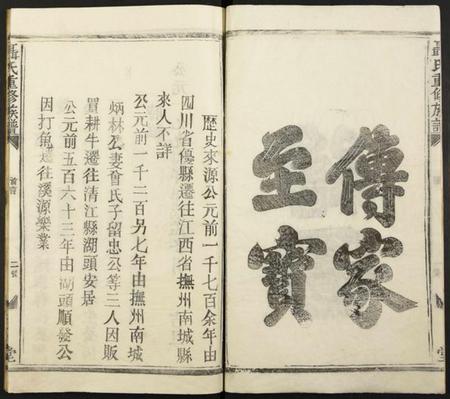 聶氏重修族譜
傳家
至寶
歷史來源公元前一千七百余年由
四川省優縣遷往江西省撫州南城縣
來人不詳
公元前一千二百另七年由撫州南城
炳林公妻曾氏子留忠公等三人因販
買耕牛遷往清江縣湖頭安居
公元前五百六十三年由湖頭順發公
因打魚遷往溪源樂業
聶氏重修族譜